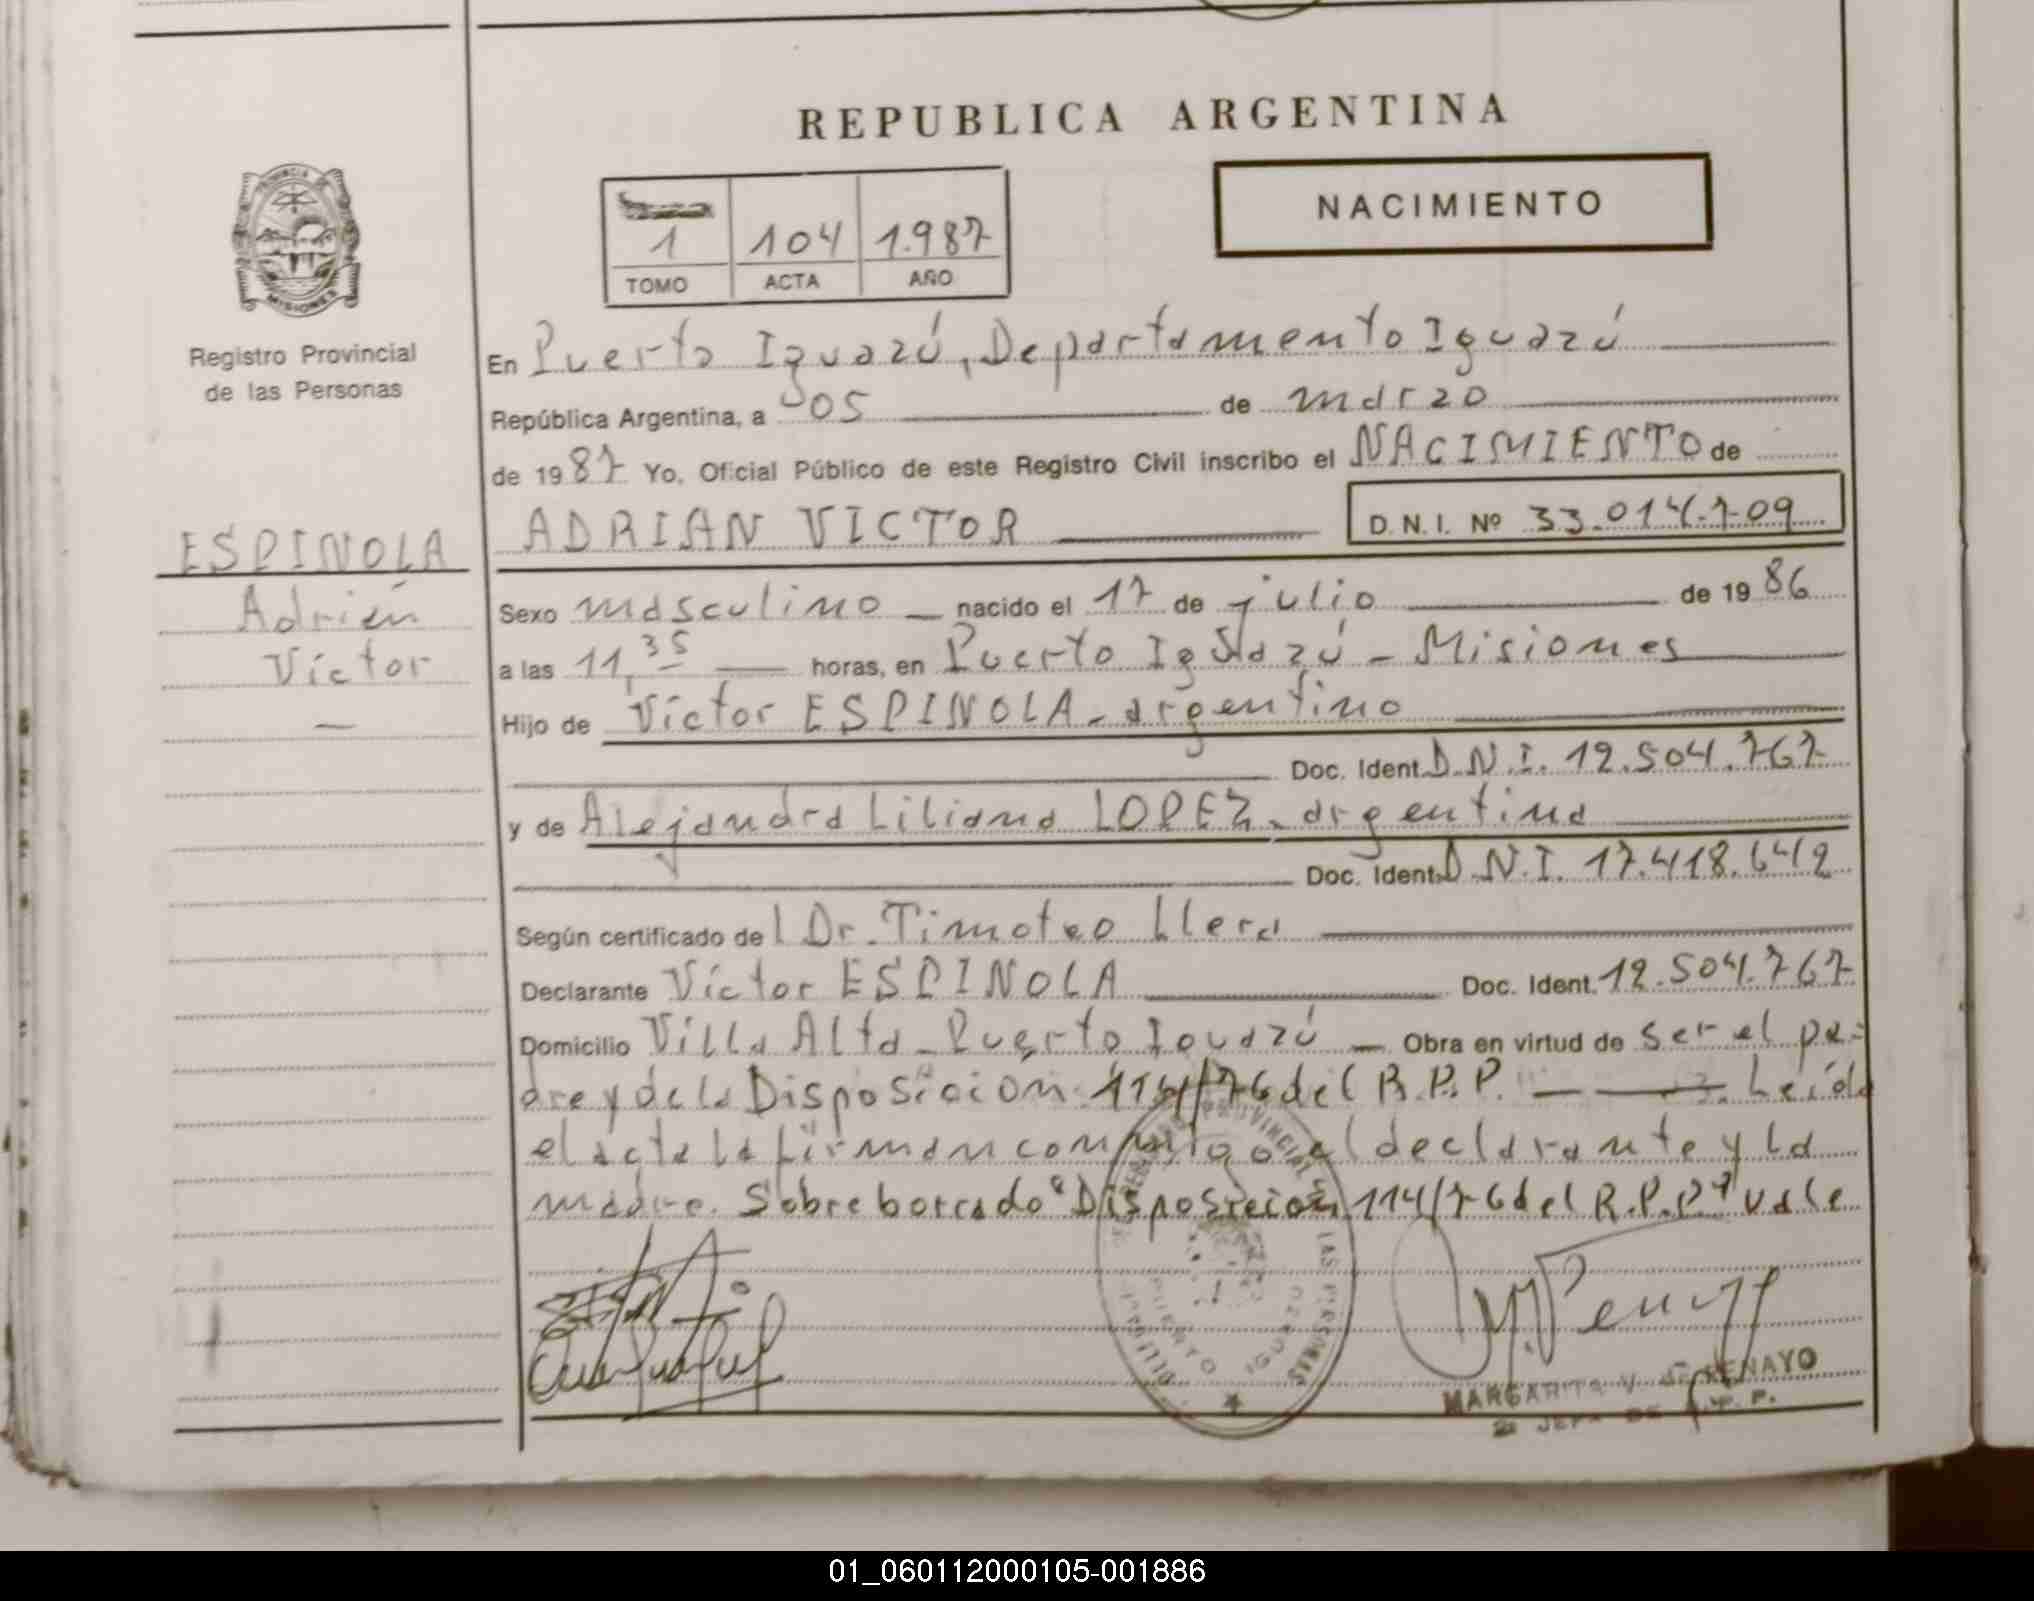 REPUBLICA ARGENTINA
NACIMIENTO
1 104 1.987
TOMO ACTA AÑO
PROVINCIA DE MISIONES
Registro Provincial
de las Personas
ESPINOLA
Adrián
Víctor
En Puerto Iguazú, Departamento Iguazú
República Argentina, a 05 de marzo
de 1987 Yo, Oficial Público de este Registro Civil inscribo el NACIMIENTO de
ADRIAN VICTOR D.N.I. Nº 33.014.709
Sexo masculino nacido el 17 de julio de 1986
a las 11,35 horas, en Puerto Iguazú - Misiones
Hijo de Víctor ESPINOLA - argentino
Doc. Ident. D.N.I. 12.504.767
y de Alejandra Liliana LOPEZ - argentina
Doc. Ident. D.N.I. 17.418.642
Según certificado del Dr. Timoteo Llera
Declarante Víctor ESPINOLA Doc. Ident. 12.504.767
Domicilio Villa Alta - Puerto Iguazú - Obra en virtud de ser el pa=
dre y de la Disposición 114/76 del R.P.P. Leída
el acta la firman conmigo el declarante y la
madre. Sobre borrado "Disposición 114/76 del R.P.P" vale
REGISTRO PROVINCIAL DE LAS PERSONAS
PUERTO IGUAZU
MARGARITA V. DE PENAYO
01_060112000105-001886